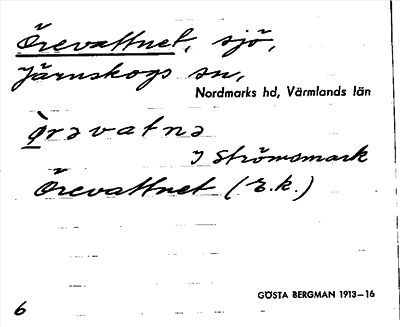 Örevattnet, sjö,
Järnskogs sn,
Nordmarks hd, Värmlands län
ø̀rəvatnə
J Strömsmark
Örevattnet (E.k.)
GÖSTA BERGMAN 1913–16
6